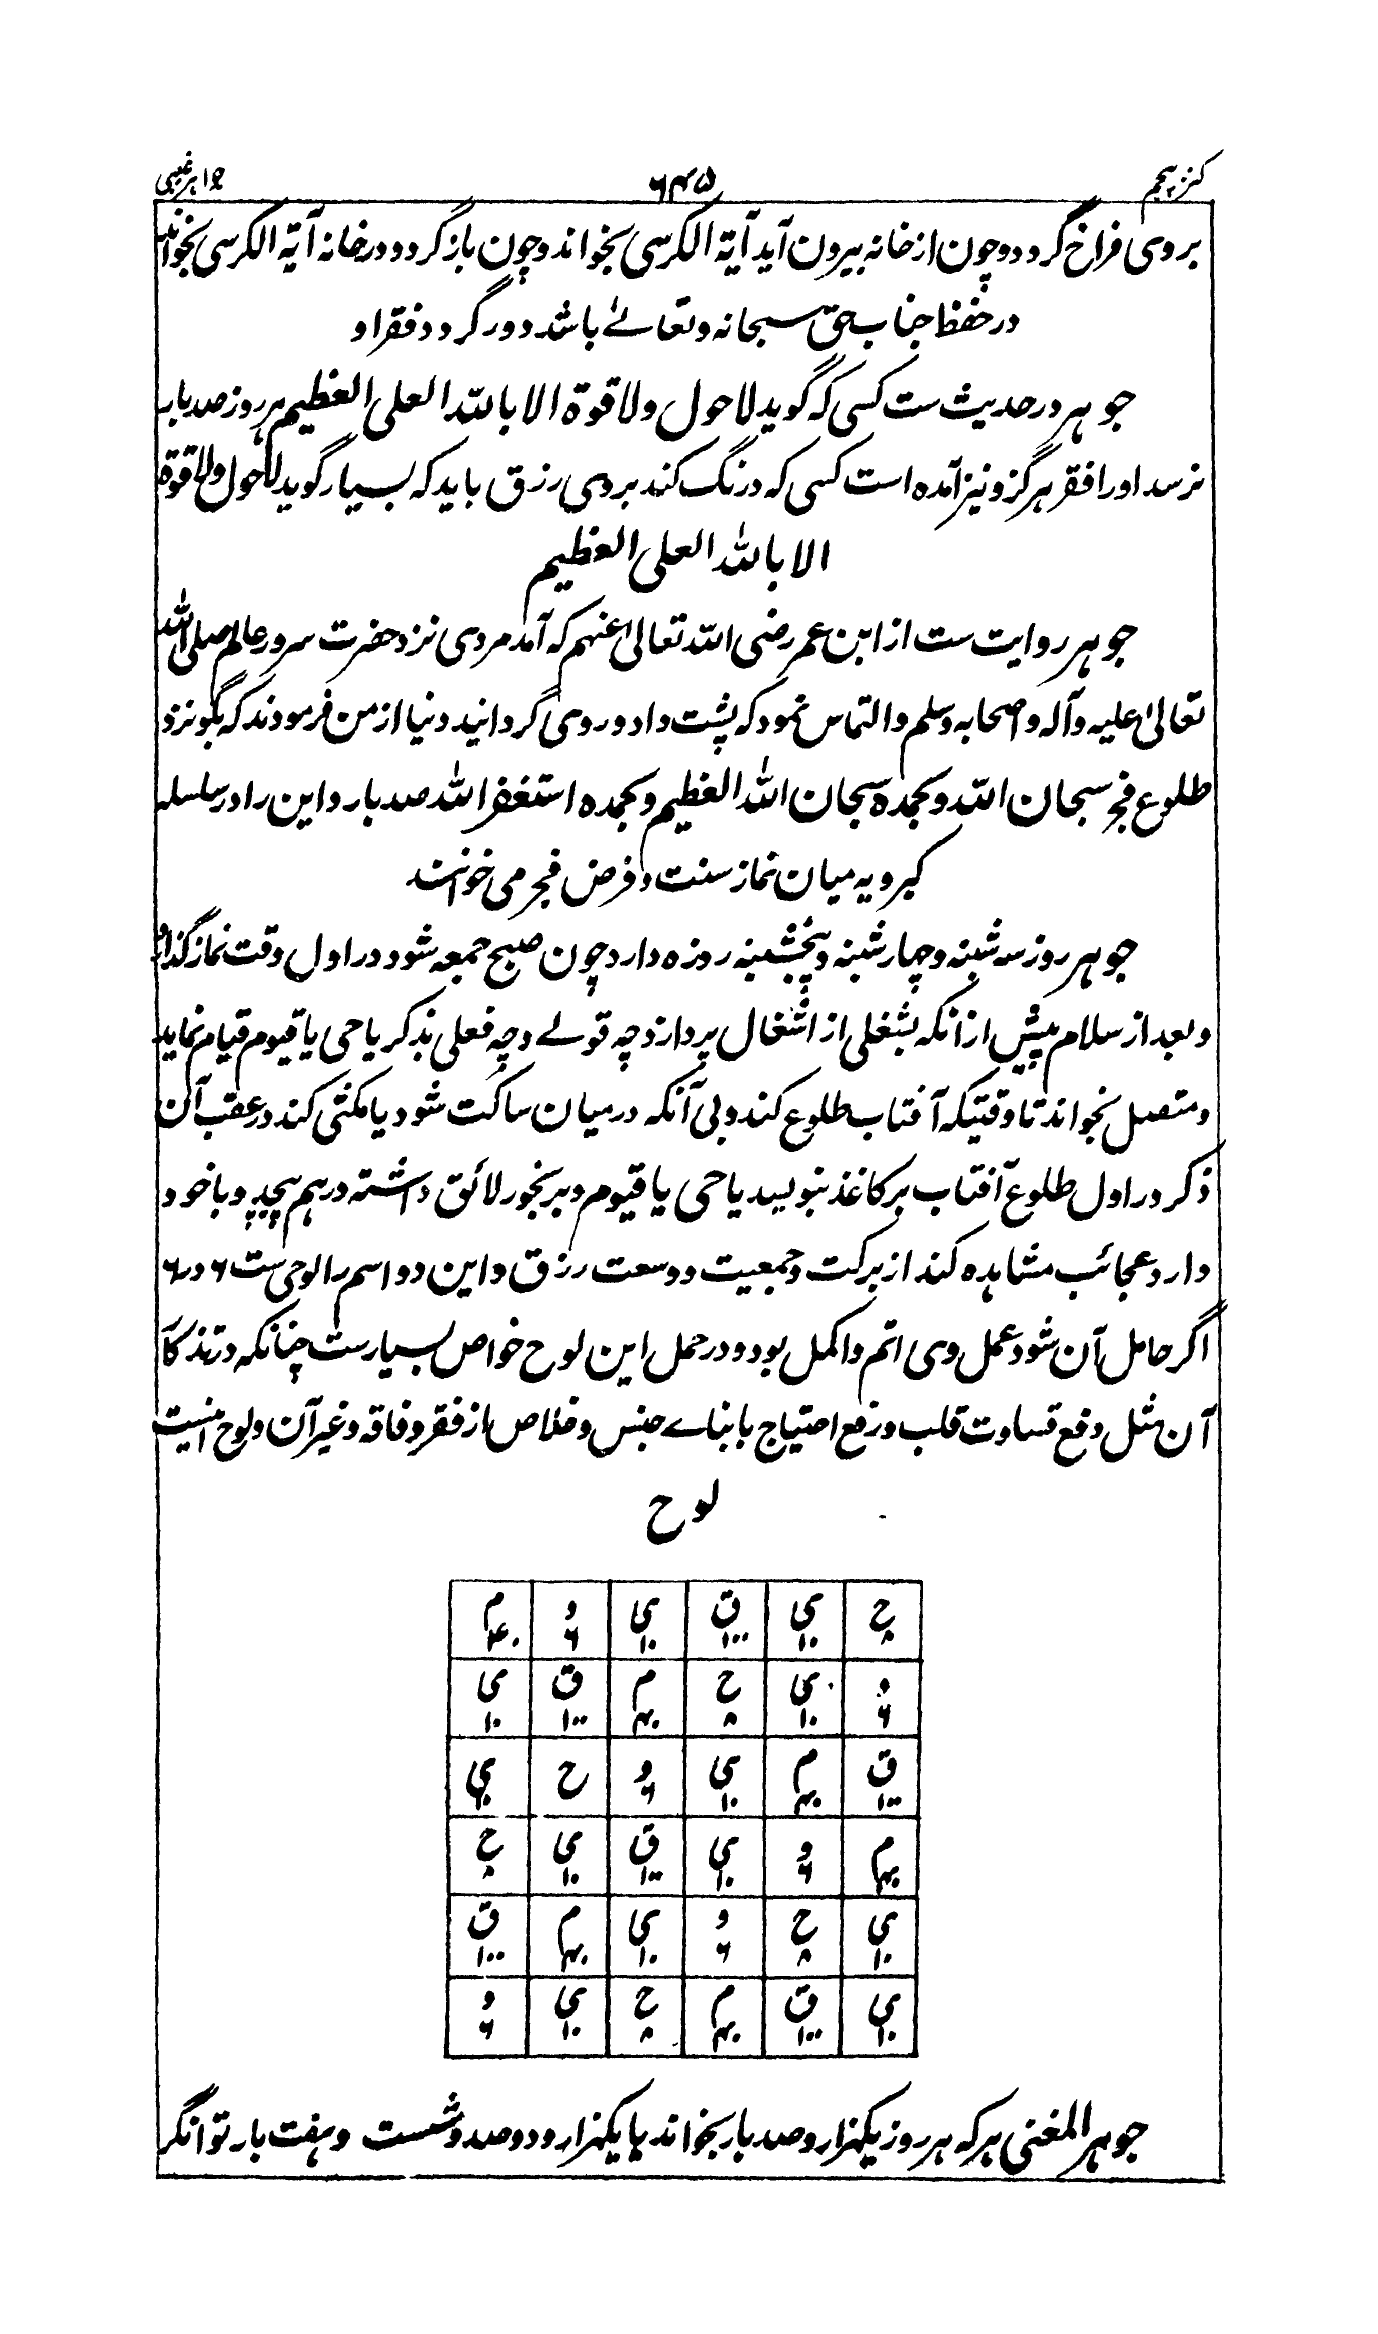 کنز پنجم ۶۴۵ جواهر غیبی
بروی فراخ گردد و چون از خانه بیرون آید آیة الکرسی بخواند و چون باز گردد و در خانه آیة الکرسی بخواند
در حفظ جناب حق سبحانه و تعالے باشد دور گردد فقر او
جوهر در حدیث ست کسی که گوید لا حول ولا قوة الا بالله العلی العظیم هر روز صد بار
نرسد او را فقر هرگز و نیز آمده است کسی که درنگ کند بروی رزق باید که بسیار گوید لا حول ولا قوة
الا بالله العلی العظیم
جوهر روایت ست از ابن عمر رضی الله تعالیٰ عنهم که آمد مردی نزد حضرت سرور عالم صلی الله
تعالیٰ علیه وآله واصحابه وسلم و التماس نمود که پشت داد و روی گردانید دنیا از من فرمودند که بگو نزد
طلوع فجر سبحان الله و بحمده سبحان الله العظیم و بحمده استغفر الله صد بار و این را در سلسله
کبرویه میان نماز سنت و فرض فجر می خوانند
جوهر روز سه شنبه و چهار شنبه و پنجشنبه روزه دارد چون صبح جمعه شود در اول وقت نماز گذارد
و بعد از سلام پیش از انکه بشغلی از اشغال پردازد چه قولے و چه فعلی بذکر یا حی یا قیوم قیام نماید
و متصل بخواند تا وقتیکه آفتاب طلوع کند و بی آنکه درمیان ساکت شود یا مکثی کند در عقب آن
ذکر در اول طلوع آفتاب بر کاغذ بنویسد یا حی یا قیوم و بر بخور لائق داشته درهم پیچید و با خود
دارد عجائب مشاهده کند از برکت و جمعیت و وسعت رزق و این دو اسم را لوحی ست ۶ در ۶
اگر حامل آن شود عمل وی اتم و اکمل بود و در حمل این لوح خواص بسیارست چنانکه در تذکار
آن مثل دفع قساوت قلب و رفع احتیاج بابناے جنس و خلاص از فقر و فاقه و غیر آن و لوح اینست
لوح
ح ی ق ی و م
۸ ۱۰ ۱۰۰ ۱۰ ۶ ۴۰
و ی ح م ق ی
۶ ۱۰ ۸ ۴۰ ۱۰۰ ۱۰
ق م ی و ح ی
۱۰۰ ۴۰ ۱۰ ۶ ۱۰
م و ی ق ی ح
۴۰ ۶ ۱۰ ۱۰۰ ۱۰ ۸
ی ح و ی م ق
۱۰ ۸ ۶ ۱۰ ۴۰ ۱۰۰
ی ق م ح ی و
۱۰ ۱۰۰ ۴۰ ۸ ۱۰ ۶
جوهر المغنی هر که هر روز یکهزار و صد بار بخواند یا یکهزار و دو صد و شست و هفت بار توانگر